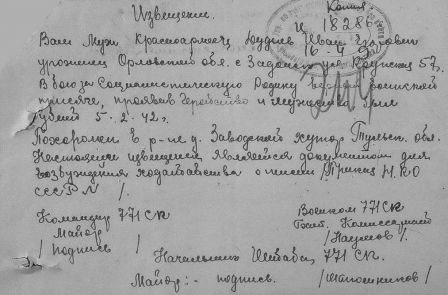 Копия.
Извещение.
№ 18286
Ваш муж Красноармеец Иван
уроженец Орловской обл. с. 57
В бою за Социалистическую Родину воинской
присяге, проявив геройство и мужество был
5. 2. 42 г.
Похоронен в р-не д. Заводский хутор Тульск. обл.
Настоящее извещение является документом для
возбуждения ходатайства о пенсии /Приказ Н.К.О
СССР N /.
Командир 771 СК
Военком 771 СК
Майор
Бат. Комиссар
/ подпись /
/ Наумов /.
Начальник Штаба 771 СК.
Майор:- подпись.